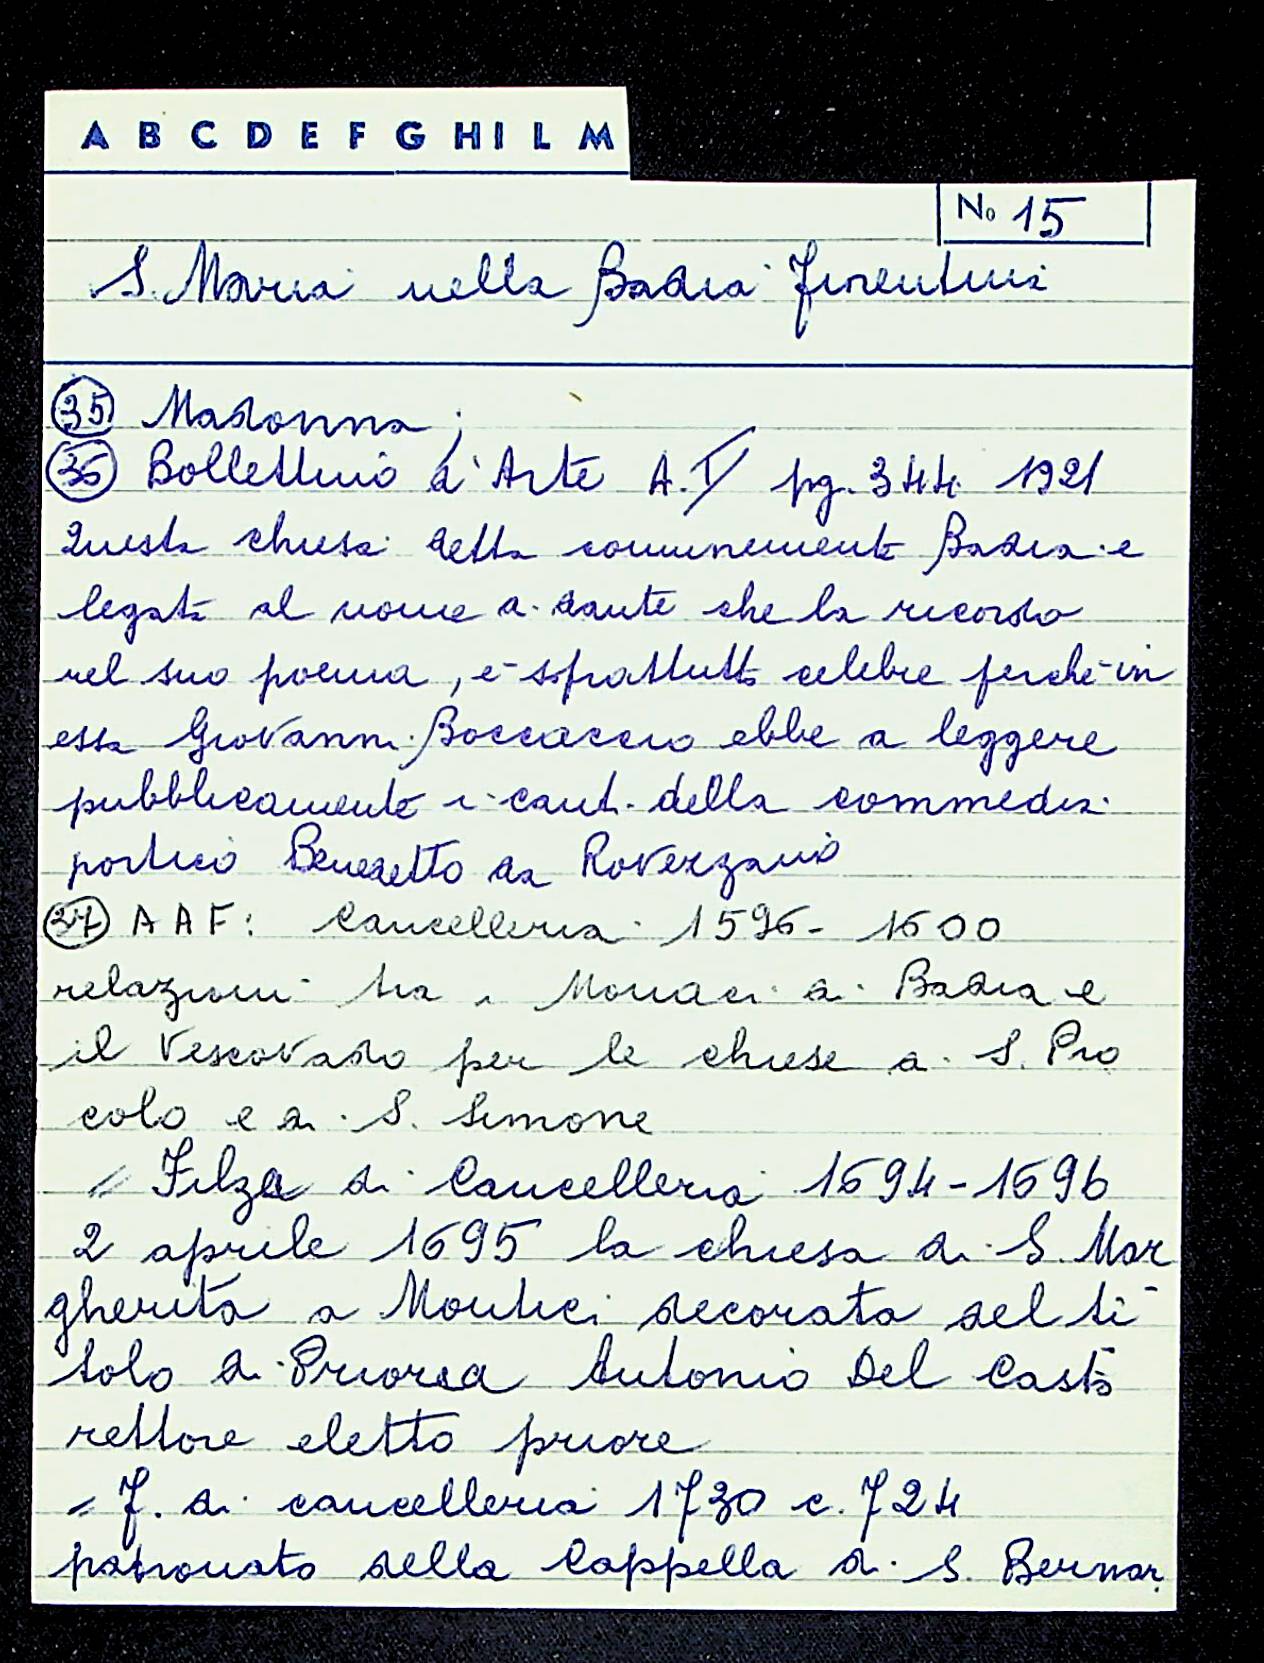 A B C D E F G H I L M
No 15
S. Maria nella Badia Fiorentina
35 Madonna;
36 Bollettino d'Arte A. V pg. 344 1921
Questa chiesa detta comunemente Badia e
legata al nome di Dante che la ricordo
nel suo poema, e soprattutto celebre perché in
essa Giovanni Boccaccio ebbe a leggere
pubblicamente i canti della commedia
portico Benedetto da Roverzano
37 AAF: Cancelleria 1596-1600
relazioni tra i Monaci di Badia e
il Vescovado per le chiese di S. Pro
colo e di S. Simone
" Filza di Cancelleria 1694-1696
2 aprile 1695 la chiesa di S. Mar
gherita a Montici decorata del ti-
tolo di Prioria Antonio Del Casto
rettore eletto priore
" F. di cancelleria 1730 c. 724
patronato della Cappella di S. Bernar.